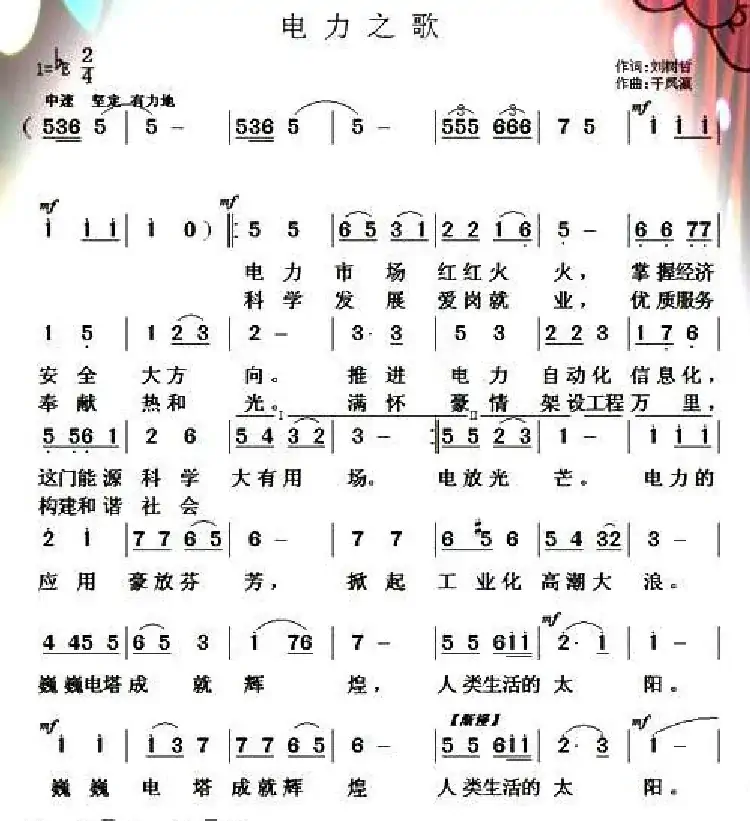 电力之歌
1=bE 2/4
作词:刘树哲
作曲:于凤瀛
中速 坚定 有力地
mf
( 536 5 | 5 - | 536 5 | 5 - | 555 666 | 7 5 | i i i |
mf mf
i i i | i 0 ) ‖: 5 5 | 6 5 3 1 | 2 2 1 6 | 5 - | 6 6 77 |
电力市场红红火火，掌握经济
科学发展爱岗就业，优质服务
1 5 | 1 2 3 | 2 - | 3· 3 | 5 3 | 2 2 3 | 1 7 6 |
安全大方向。推进电力自动化信息化，
奉献热和光。满怀豪情架设工程万里，
I II
5 56 1 | 2 6 | 5 4 3 2 | 3 - :‖ 5 5 2 3 | 1 - | i i i |
这门能源科学大有用场。电放光芒。电力的
构建和谐社会
2 i | 7 7 6 5 | 6 - | 7 7 | 6 #5 6 | 5 4 32 | 3 - |
应用豪放芬芳，掀起工业化高潮大浪。
mf
4 45 5 | 6 5 3 | i 76 | 7 - | 5 5 6ii | 2· i | i - |
巍巍电塔成就辉煌，人类生活的太阳。
mf 【渐慢】 mf
i i | i 3 7 | 7 7 6 5 | 6 - | 5 5 6ii | 2· 3 | i - |
巍巍电塔成就辉煌人类生活的太阳。